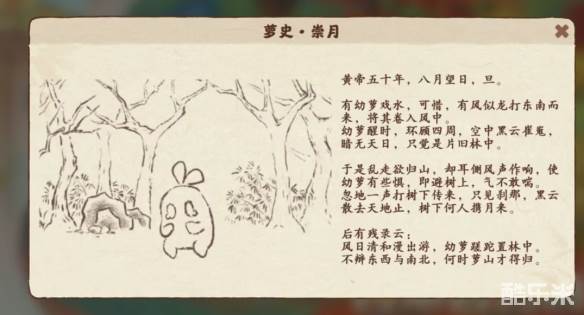 萝史·崇月
黄帝五十年，八月望日，旦。
有幼萝戏水，可惜，有风似龙打东南而
来，将其卷入风中。
幼萝醒时，环顾四周，空中黑云崔嵬，
暗无天日，只觉是片旧林中。
于是乱走欲归山，却耳侧风声作响，使
幼萝有些惧，即避树上，气不敢喘。
忽地一声打树下传来，只见刹那，黑云
散去天地止，树下何人携月来。
后有残录云：
风日清和漫出游，幼萝蹉跎置林中。
不辩东西与南北，何时萝山才得归。
酷乐米